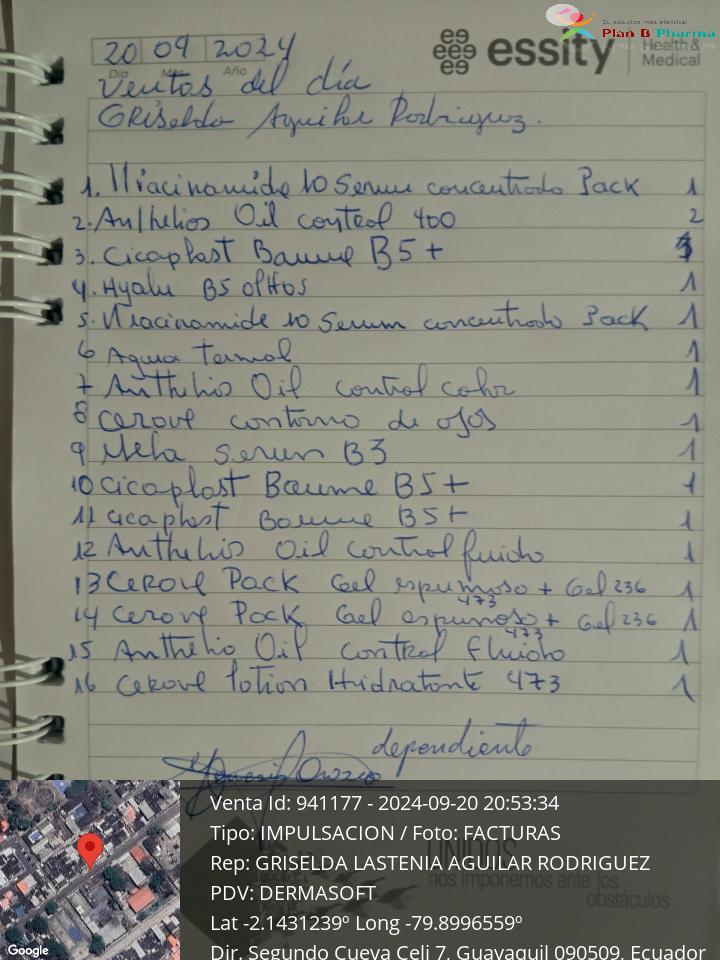 Su solución más efectiva!
Plan B Pharma
20 09 2024
essity
Health &
Medical
Día Mes Año
Ventas del día
Griselda Aguilar Rodriguez.
1. Niacinamide 10 Serum concentrado Pack 1
2. Anthelios Oil control 400 2
3. Cicaplast Baume B5+
4. Hyalu B5 olhos 1
5. Niacinamide 10 Serum concentrado Pack 1
6 Agua Termal 1
7 Anthelio Oil control color 1
8 Cerave contorno de ojos 1
9 Mela Serum B3 1
10 Cicaplast Baume B5+ 1
11 Cicaplast Baume B5+ 1
12 Anthelio Oil control fluido 1
13 Cerave Pack Gel espumoso + Gel 236 1
473
14 Cerave Pack Gel espumoso + Gel 236 1
473
15 Anthelio Oil control Fluido 1
16 Cerave lotion Hidratante 473 1
dependiente
Orozco
Venta Id: 941177 - 2024-09-20 20:53:34
Tipo: IMPULSACION / Foto: FACTURAS
Rep: GRISELDA LASTENIA AGUILAR RODRIGUEZ
PDV: DERMASOFT
Lat -2.1431239º Long -79.8996559º
Dir. Segundo Cueva Celi 7, Guayaquil 090509, Ecuador
UNIDOS
nos imponemos ante los
obstáculos
Google